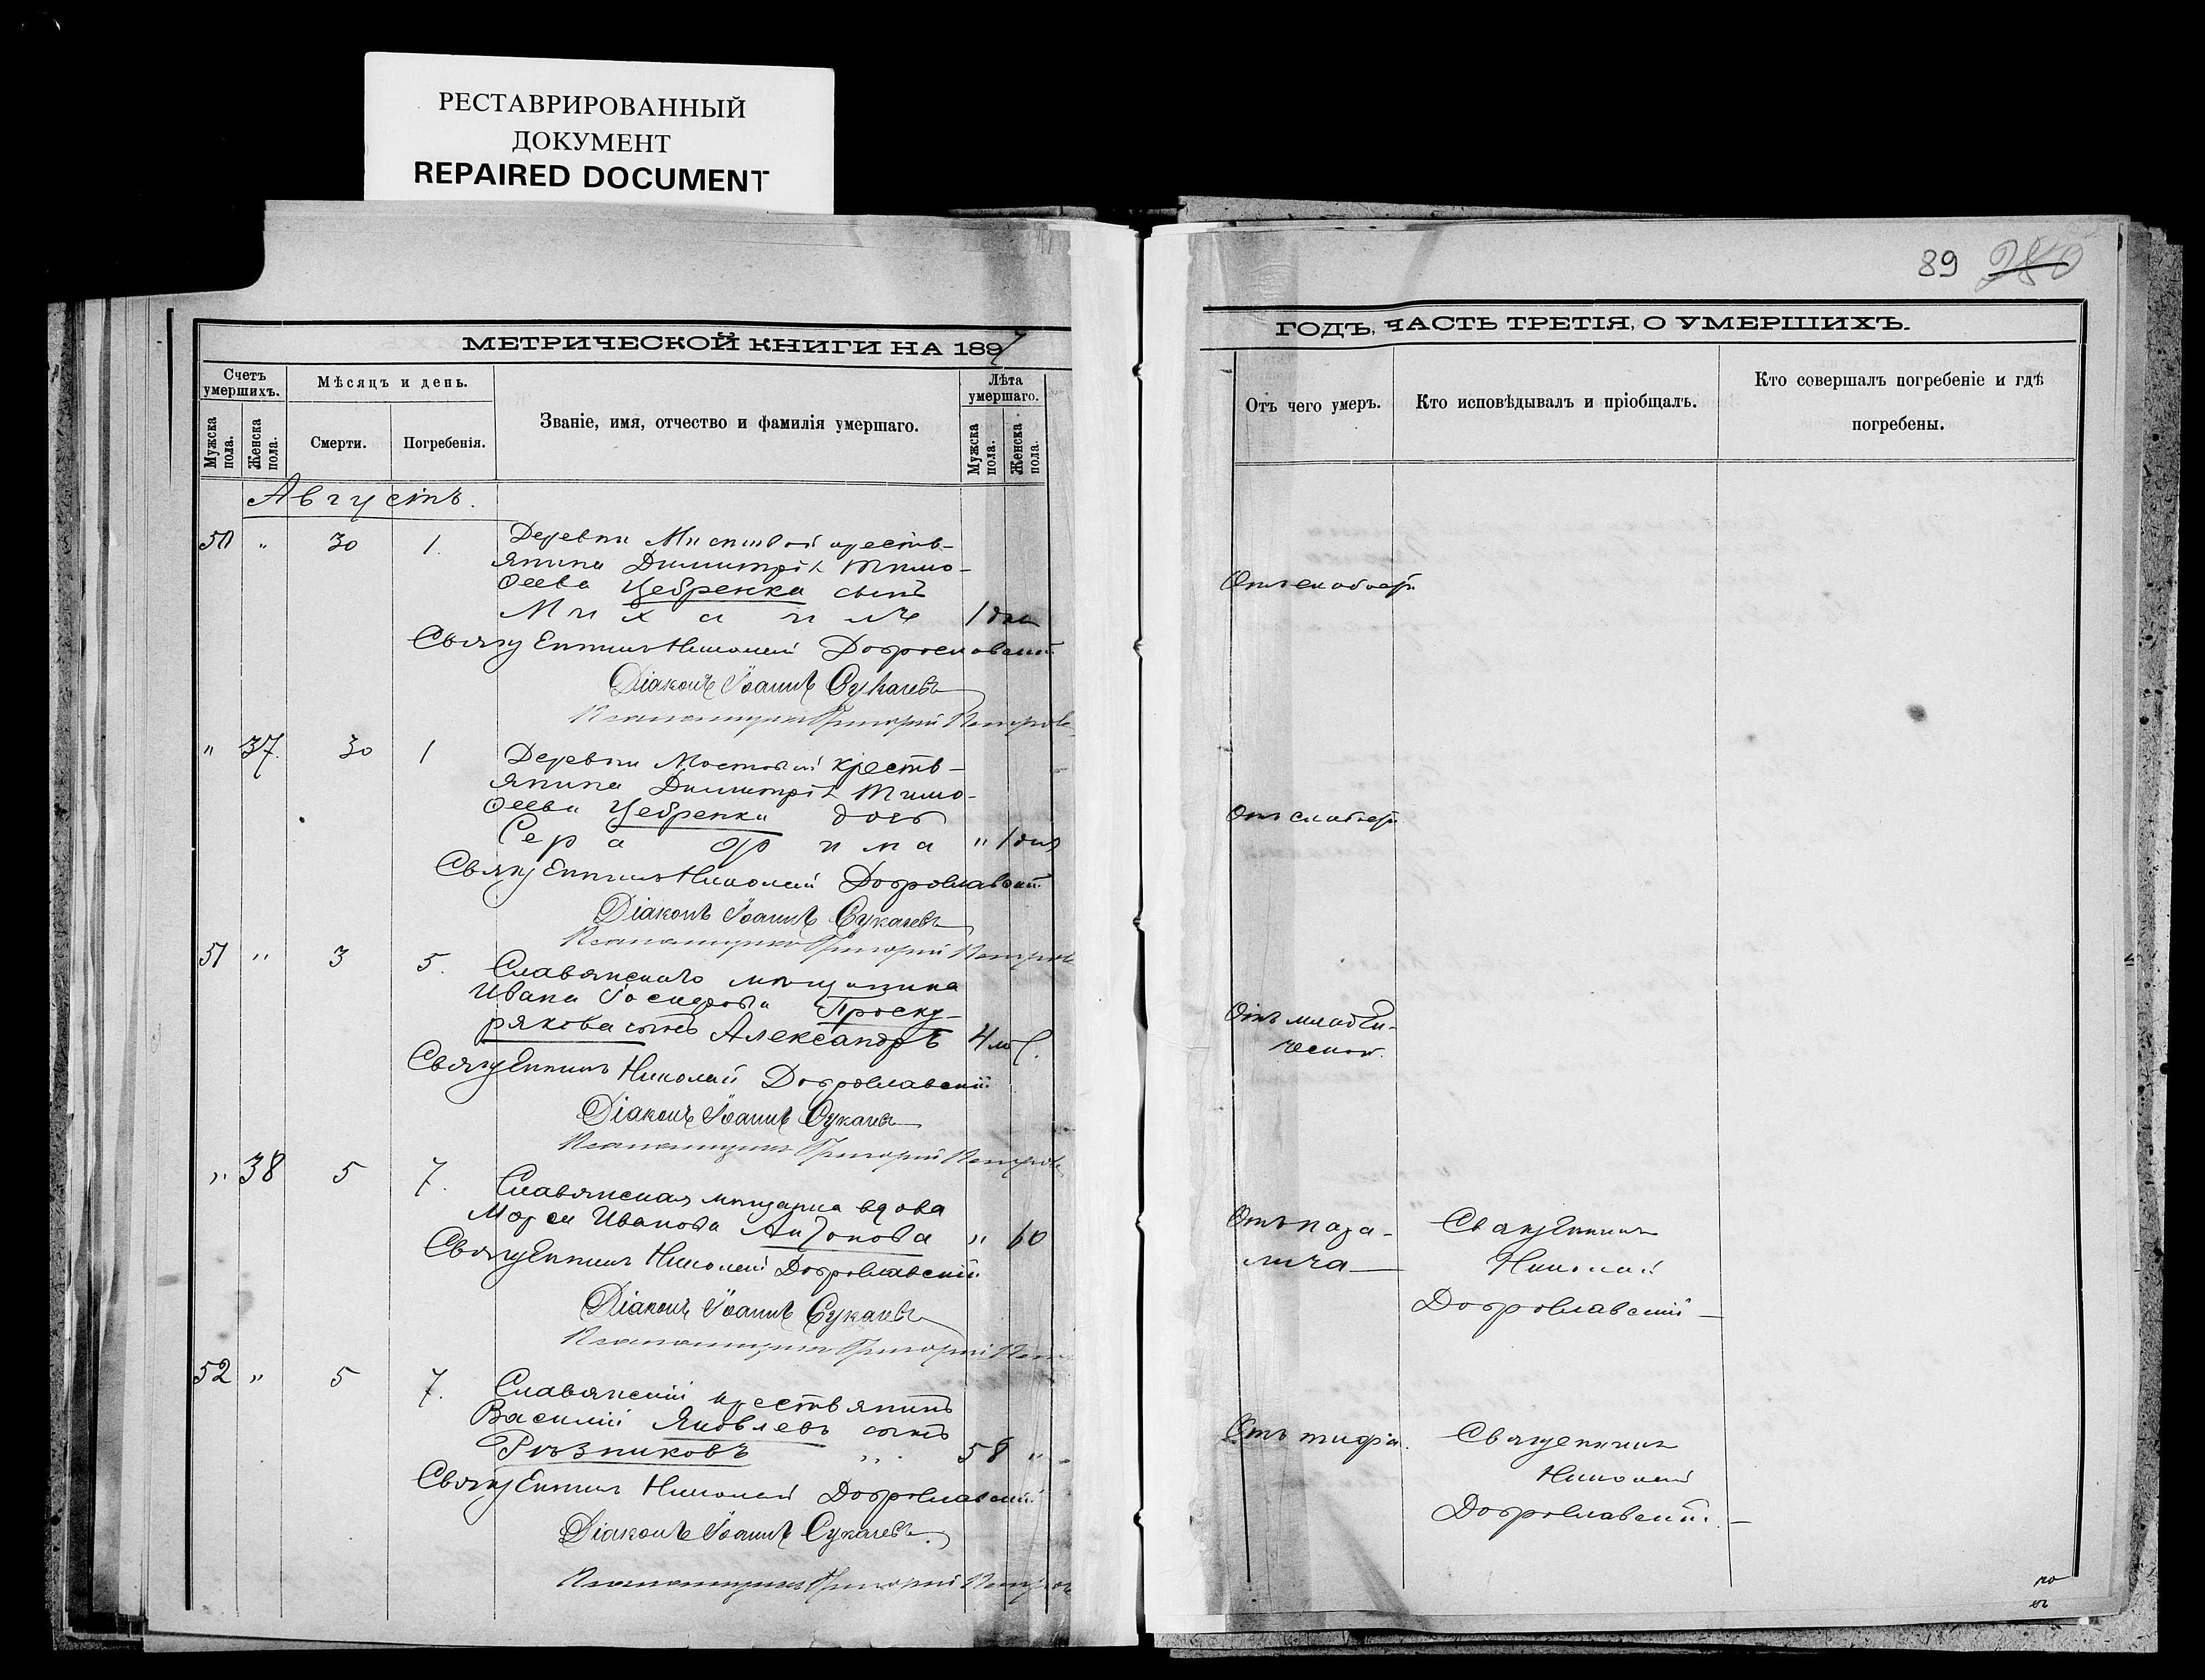 РЕСТАВРИРОВАННЫЙ
ДОКУМЕНТ
REPAIRED DOCUMENT
МЕТРИЧЕСКОЙ КНИГИ НА 1897
Счетъ умершихъ.
Мужска пола.
Женска пола.
Мѣсяцъ и день.
Смерти.
Погребенія.
Званіе, имя, отчество и фамилія умершаго.
Лѣта умершаго.
Мужска пола.
Женска пола.
Августъ.
50 " 30 1. Деревни крестъ-
янина Димитрія Тимо-
ѳеева Цебренка сынъ
Михаилъ 1 дня
Священникъ Николай Доброславскій
Діаконъ Іоаннъ Сукачевъ
Псаломщикъ Григорій Петровъ
" 37. 30 1 Деревни Мостовой крестъ-
янина Димитрія Тимо-
ѳеева Цебренка дочь
Серафима " 1 дня
Священникъ Николай Доброславскій
Діаконъ Іоаннъ Сукачевъ
Псаломщикъ Григорій Петровъ
51 " 3 5. Славянскаго мѣщанина
Ивана Проску-
рякова сынъ Александръ 4
Священникъ Николай Доброславскій
Діаконъ Іоаннъ Сукачевъ
Псаломщикъ Григорій Петровъ
" 38 5 7. Славянская мѣщанка вдова
Иванова " 60
Священникъ Николай Доброславскій
Діаконъ Іоаннъ Сукачевъ
Псаломщикъ Григорій
52 " 5 7. Славянскій крестьянинъ
Василій Яковлевъ сынъ
Рѣзниковъ 58 "
Священникъ Николай Доброславскій
Діаконъ Іоаннъ Сукачевъ
Псаломщикъ Григорій Петровъ
89 280
ГОДЪ, ЧАСТЬ ТРЕТІЯ, О УМЕРШИХЪ.
Отъ чего умеръ.
Кто исповѣдывалъ и пріобщалъ.
Кто совершалъ погребеніе и гдѣ
погребены.
Отъ слабост.
Отъ слабост.
Отъ младен-
ческой.
Отъ пара-
лича
Священникъ
Николай
Доброславскій
Отъ тифа.
Священникъ
Николай
Доброславскій.